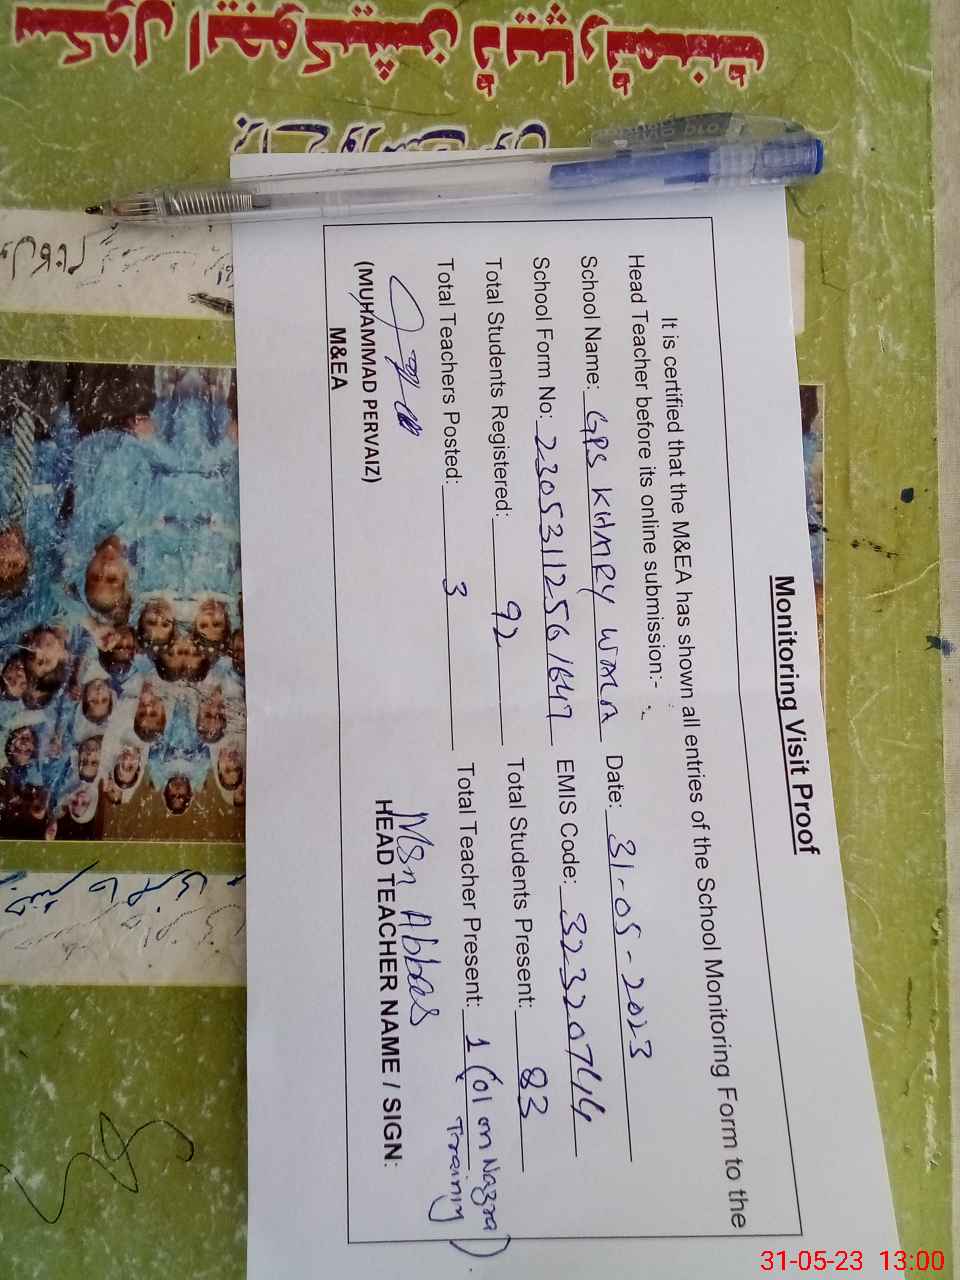 سکول ایجوکیشن ڈیپارٹمنٹ
Monitoring Visit Proof
It is certified that the M&EA has shown all entries of the School Monitoring Form to the
Head Teacher before its online submission:-
School Name: GPS KHMRY WALA Date: 31-05-2023
School Form No: 23053112561647 EMIS Code: 32320744
Total Students Registered: 92 Total Students Present: 83
Total Teachers Posted: 3 Total Teacher Present: 1 (01 on Nazra Training)
Msn Abbas
(MUHAMMAD PERVAIZ) HEAD TEACHER NAME / SIGN:
M&EA
31-05-23 13:00